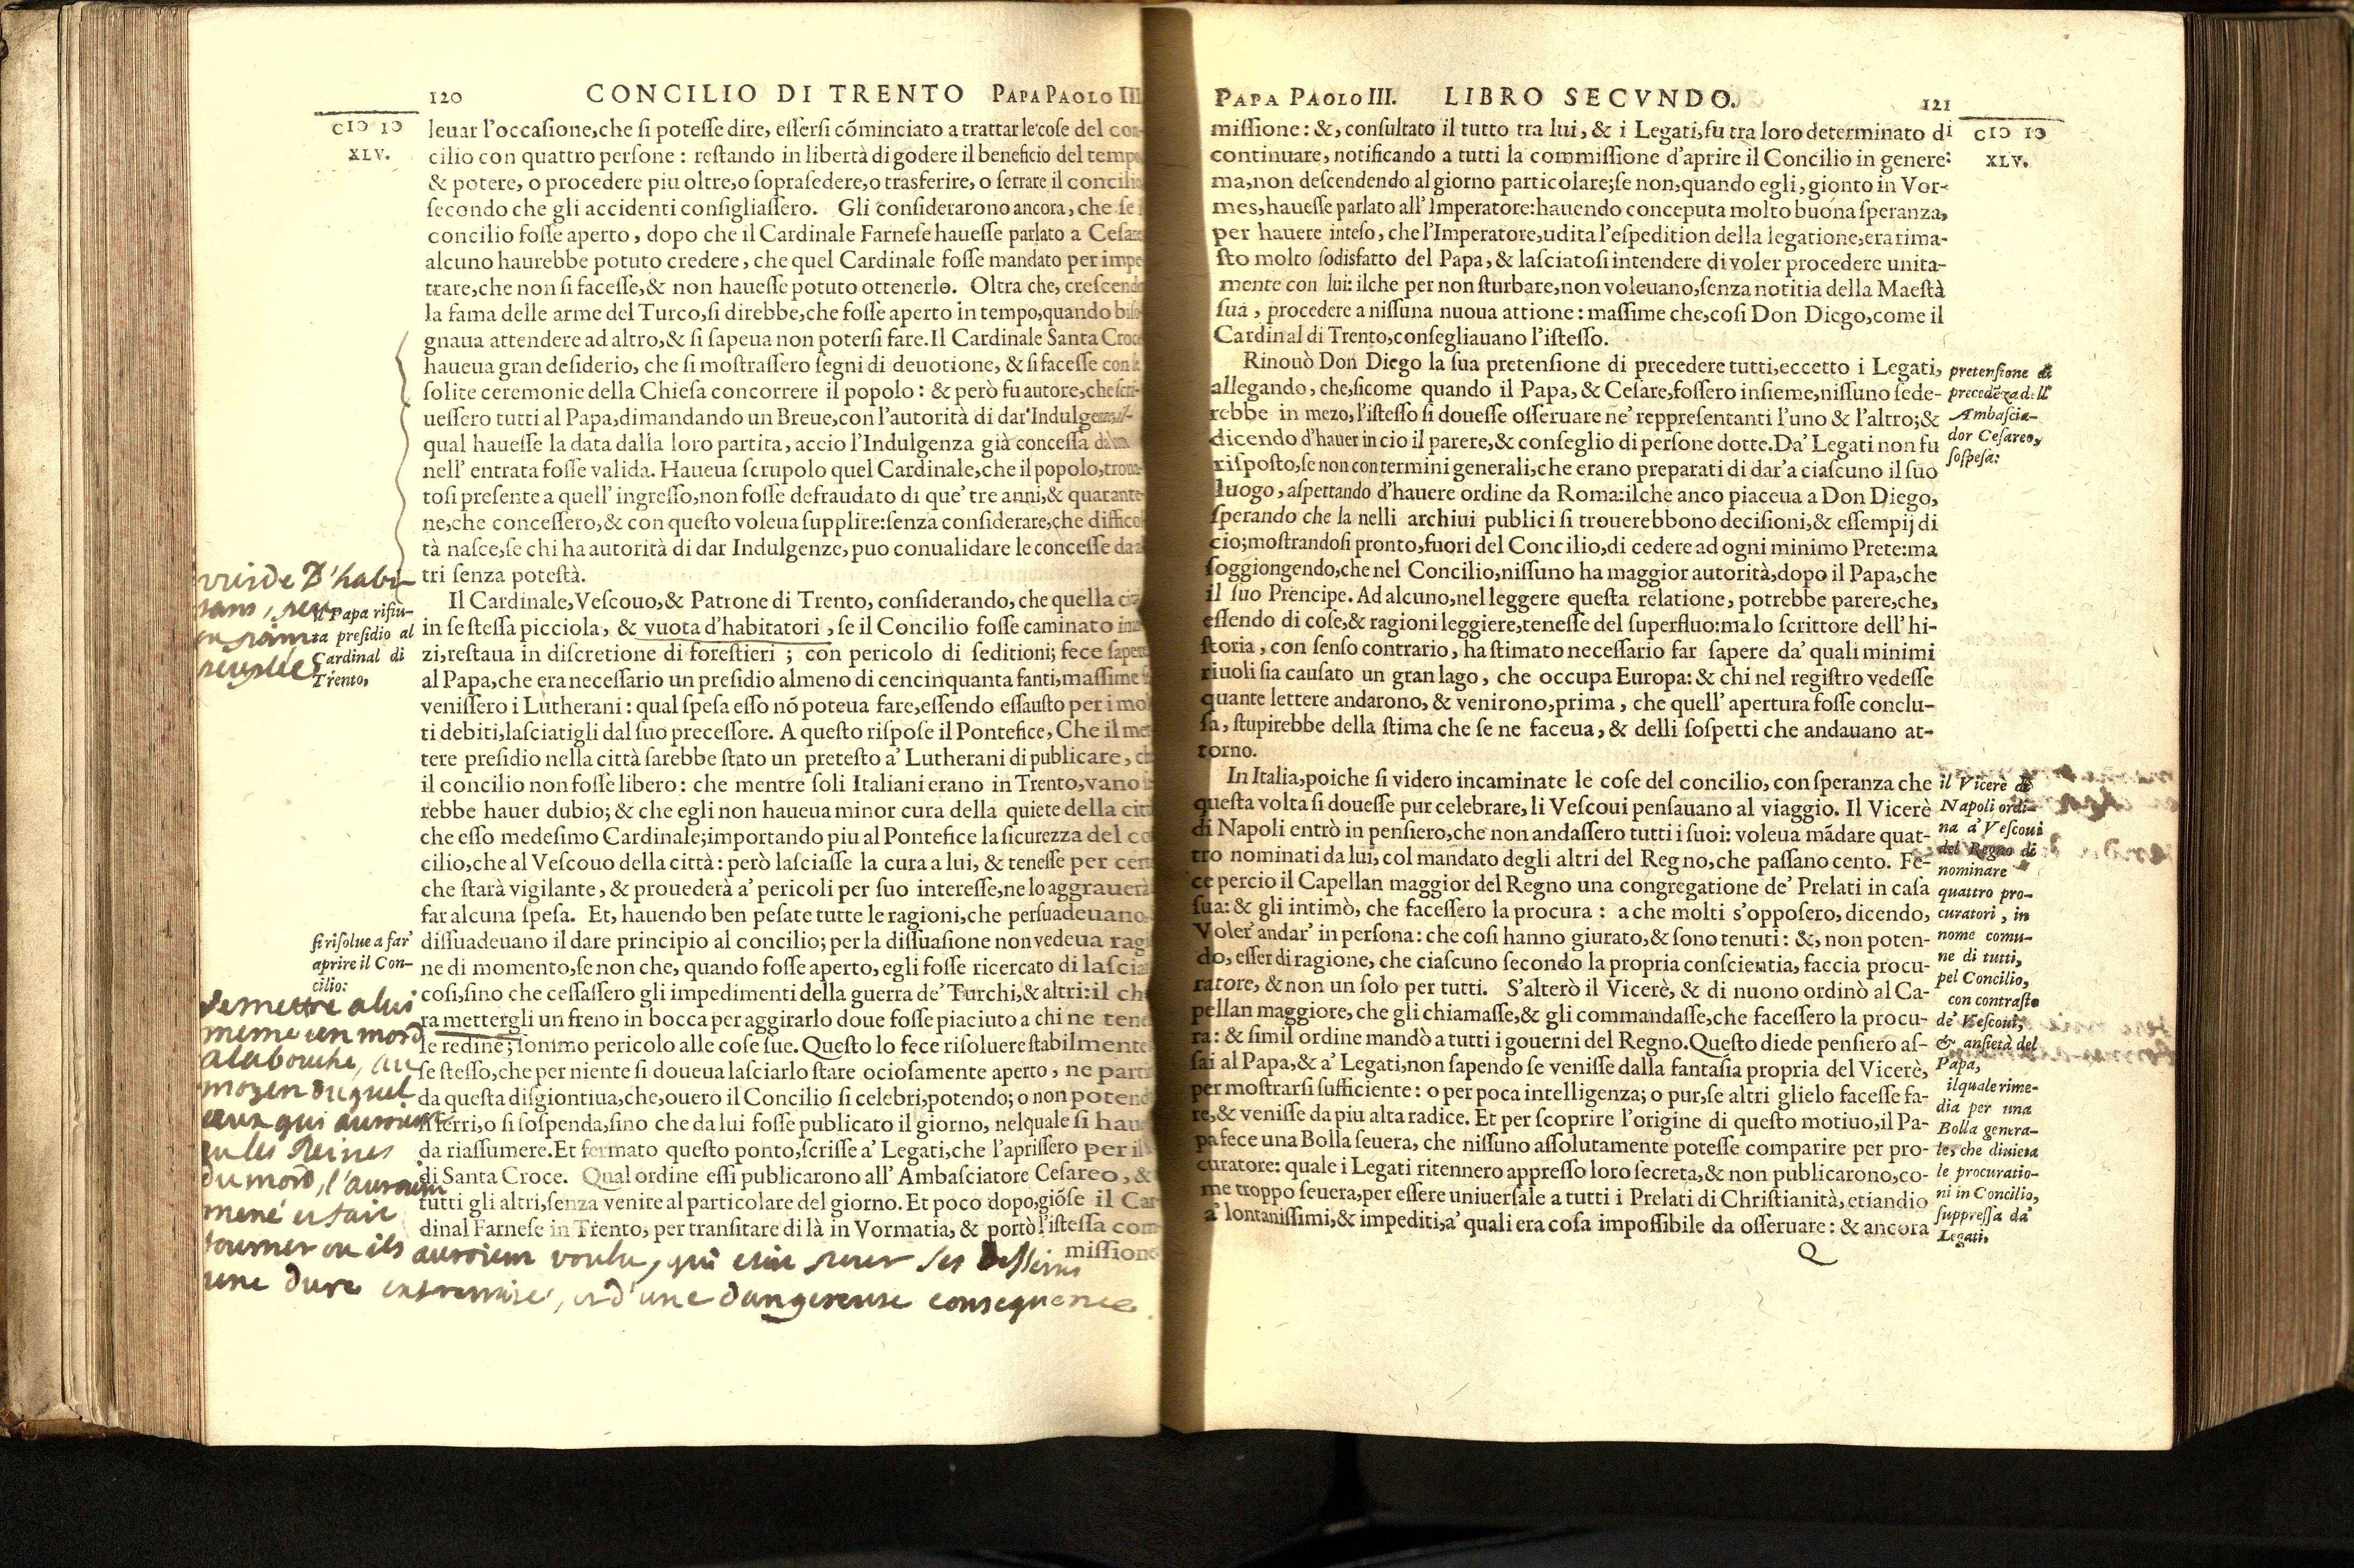 120 CONCILIO DI TRENTO PAPA PAOLO III
CIƆ IƆ
XLV.
leuar l'occaſione,che ſi poteſſe dire, eſſerſi cõminciato a trattar le coſe del con-
cilio con quattro perſone: reſtando in libertà di godere il beneficio del tempo
& potere, o procedere piu oltre,o ſopraſedere,o trasferire, o ſerrare il concilio
ſecondo che gli accidenti conſigliaſſero. Gli conſiderarono ancora, che ſe
concilio foſſe aperto, dopo che il Cardinale Farneſe haueſſe parlato a Ceſare
alcuno haurebbe potuto credere, che quel Cardinale foſſe mandato per impe
trare,che non ſi faceſſe,& non haueſſe potuto ottenerlo. Oltra che, creſcendo
la fama delle arme del Turco,ſi direbbe,che foſſe aperto in tempo,quando biſo-
gnaua attendere ad altro,& ſi ſapeua non poterſi fare.Il Cardinale Santa Croce
haueua gran deſiderio, che ſi moſtraſſero ſegni di deuotione, & ſi faceſſe con le
ſolite ceremonie della Chieſa concorrere il popolo: & però fu autore,che ſcri-
ueſſero tutti al Papa,dimandando un Breue,con l'autorità di dar' Indulgenze,il-
qual haueſſe la data dalla loro partita, accio l'Indulgenza già conceſſa da
nell' entrata foſſe valida. Haueua ſcrupolo quel Cardinale,che il popolo,troua-
toſi preſente a quell' ingreſſo,non foſſe defraudato di que' tre anni,& quarante-
ne,che conceſſero,& con queſto voleua ſupplire:ſenza conſiderare,che difficol
tà naſce,ſe chi ha autorità di dar Indulgenze, puo conualidare le conceſſe da al
tri ſenza poteſtà.
vuide d'habi-
il Papa rifiu-
ta preſidio al
Cardinal di
Trento,
Il Cardinale,Veſcouo,& Patrone di Trento, conſiderando, che quella
in ſe ſteſſa picciola, & vuota d'habitatori, ſe il Concilio foſſe caminato
zi,reſtaua in diſcretione di foreſtieri; con pericolo di ſeditioni; fece ſapere
al Papa,che era neceſſario un preſidio almeno di cencinquanta fanti,maſſime
veniſſero i Lutherani: qual ſpeſa eſſo nõ poteua fare,eſſendo eſſauſto per i mol
ti debiti,laſciatigli dal ſuo preceſſore. A queſto riſpoſe il Pontefice, Che il met
tere preſidio nella città ſarebbe ſtato un preteſto a' Lutherani di publicare, ch
il concilio non foſſe libero: che mentre ſoli Italiani erano in Trento,vano
rebbe hauer dubio; & che egli non haueua minor cura della quiete della citt
che eſſo medeſimo Cardinale;importando piu al Pontefice la ſicurezza del co
cilio,che al Veſcouo della città: però laſciaſſe la cura a lui, & teneſſe per cert
che ſtarà vigilante, & prouederà a' pericoli per ſuo intereſſe,ne lo aggrauerà
far alcuna ſpeſa. Et, hauendo ben peſate tutte le ragioni,che perſuadeuano
ſi riſolue a far
aprire il Con-
cilio:
diſſuadeuano il dare principio al concilio; per la diſſuaſione non vedeua ragi
ne di momento,ſe non che, quando foſſe aperto, egli foſſe ricercato di laſciar
coſi,ſino che ceſſaſſero gli impedimenti della guerra de' Turchi,& altri:il ch
ra mettergli un freno in bocca per aggirarlo doue foſſe piaciuto a chi ne tene
le redine; ſommo pericolo alle coſe ſue. Queſto lo fece riſoluere ſtabilmente
ſe ſteſſo,che per niente ſi doueua laſciarlo ſtare ocioſamente aperto, ne parti
da queſta diſgiontiua,che,ouero il Concilio ſi celebri,potendo; o non potend
ſi ſerri,o ſi ſoſpenda,ſino che da lui foſſe publicato il giorno, nelquale ſi hau
da riaſſumere.Et fermato queſto ponto,ſcriſſe a' Legati,che l'apriſſero per il
di Santa Croce. Qual ordine eſſi publicarono all' Ambaſciatore Ceſareo, &
tutti gli altri,ſenza venire al particolare del giorno. Et poco dopo,giõſe il Car
dinal Farneſe in Trento, per tranſitare di là in Vormatia, & portò l'iſteſſa com
miſſione
de mettre a lui
meme un mord
a la bouche, au
moyen duquel
ceux qui auroient
eu les Reines
du mord, l'auroient
mené et fait
tourner ou ils auroient voulu, qui
une dure extremité, et d'une dangereuse consequence
PAPA PAOLO III. LIBRO SECVNDO. 121
CIƆ IƆ
XLV.
miſſione: &, conſultato il tutto tra lui, & i Legati,fu tra loro determinato di
continuare, notificando a tutti la commiſſione d'aprire il Concilio in genere:
ma,non deſcendendo al giorno particolare;ſe non,quando egli, gionto in Vor-
mes,haueſſe parlato all' Imperatore:hauendo conceputa molto buona ſperanza,
per hauere inteſo, che l'Imperatore,udita l'eſpedition della legatione,era rima-
ſto molto ſodisfatto del Papa, & laſciatoſi intendere di voler procedere unita-
mente con lui: ilche per non ſturbare,non voleuano,ſenza notitia della Maeſtà
ſua, procedere a niſſuna nuoua attione: maſſime che,coſi Don Diego,come il
Cardinal di Trento,conſegliauano l'iſteſſo.
Rinouò Don Diego la ſua pretenſione di precedere tutti,eccetto i Legati,
allegando, che,ſicome quando il Papa, & Ceſare,foſſero inſieme,niſſuno ſede-
rebbe in mezo,l'iſteſſo ſi doueſſe oſſeruare ne' reppreſentanti l'uno & l'altro;&
dicendo d'hauer in cio il parere,& conſeglio di perſone dotte.Da' Legati non fu
riſpoſto,ſe non con termini generali,che erano preparati di dar' a ciaſcuno il ſuo
luogo, aſpettando d'hauere ordine da Roma:ilche anco piaceua a Don Diego,
ſperando che la nelli archiui publici ſi trouerebbono deciſioni,& eſſempij di
cio;moſtrandoſi pronto,fuori del Concilio,di cedere ad ogni minimo Prete:ma
ſoggiongendo,che nel Concilio,niſſuno ha maggior autorità,dopo il Papa,che
il ſuo Prencipe. Ad alcuno,nel leggere queſta relatione, potrebbe parere,che,
eſſendo di coſe,& ragioni leggiere,teneſſe del ſuperfluo:ma lo ſcrittore dell' hi-
ſtoria, con ſenſo contrario, ha ſtimato neceſſario far ſapere da' quali minimi
riuoli ſia cauſato un gran lago, che occupa Europa: & chi nel regiſtro vedeſſe
quante lettere andarono, & venirono,prima, che quell' apertura foſſe conclu-
ſa, ſtupirebbe della ſtima che ſe ne faceua, & delli ſoſpetti che andauano at-
torno.
pretenſione di
precedẽza dell'
Ambaſcia-
dor Ceſareo,
ſoſpeſa:
In Italia,poiche ſi videro incaminate le coſe del concilio, con ſperanza che
queſta volta ſi doueſſe pur celebrare, li Veſcoui penſauano al viaggio. Il Vicerè
di Napoli entrò in penſiero,che non andaſſero tutti i ſuoi: voleua mãdare quat-
tro nominati da lui, col mandato degli altri del Regno,che paſſano cento. Fe-
ce percio il Capellan maggior del Regno una congregatione de' Prelati in caſa
ſua: & gli intimò, che faceſſero la procura: a che molti s'oppoſero, dicendo,
Voler' andar' in perſona: che coſi hanno giurato,& ſono tenuti: &, non poten-
do, eſſer di ragione, che ciaſcuno ſecondo la propria conſcientia, faccia procu-
ratore, & non un ſolo per tutti. S'alterò il Vicerè, & di nuono ordinò al Ca-
pellan maggiore, che gli chiamaſſe,& gli commandaſſe,che faceſſero la procu-
ra: & ſimil ordine mandò a tutti i gouerni del Regno.Queſto diede penſiero aſ-
ſai al Papa,& a' Legati,non ſapendo ſe veniſſe dalla fantaſia propria del Vicerè,
per moſtrarſi ſufficiente: o per poca intelligenza; o pur,ſe altri glielo faceſſe fa-
re,& veniſſe da piu alta radice. Et per ſcoprire l'origine di queſto motiuo,il Pa-
pa fece una Bolla ſeuera, che niſſuno aſſolutamente poteſſe comparire per pro-
curatore: quale i Legati ritennero appreſſo loro ſecreta,& non publicarono,co-
me troppo ſeuera,per eſſere uniuerſale a tutti i Prelati di Chriſtianità, etiandio
a' lontaniſſimi,& impediti,a' quali era coſa impoſſibile da oſſeruare: & ancora
il Vicerè di
Napoli ordi-
na a' Veſcoui
del Regno di
nominare
quattro pro-
curatori, in
nome comu-
ne di tutti,
pel Concilio,
con contraſto
de' Veſcoui,
& anſietà del
Papa,
ilquale rime-
dia per una
Bolla genera-
le, che diuieta
le procuratio-
ni in Concilio,
ſuppreſſa da'
Legati.
Q